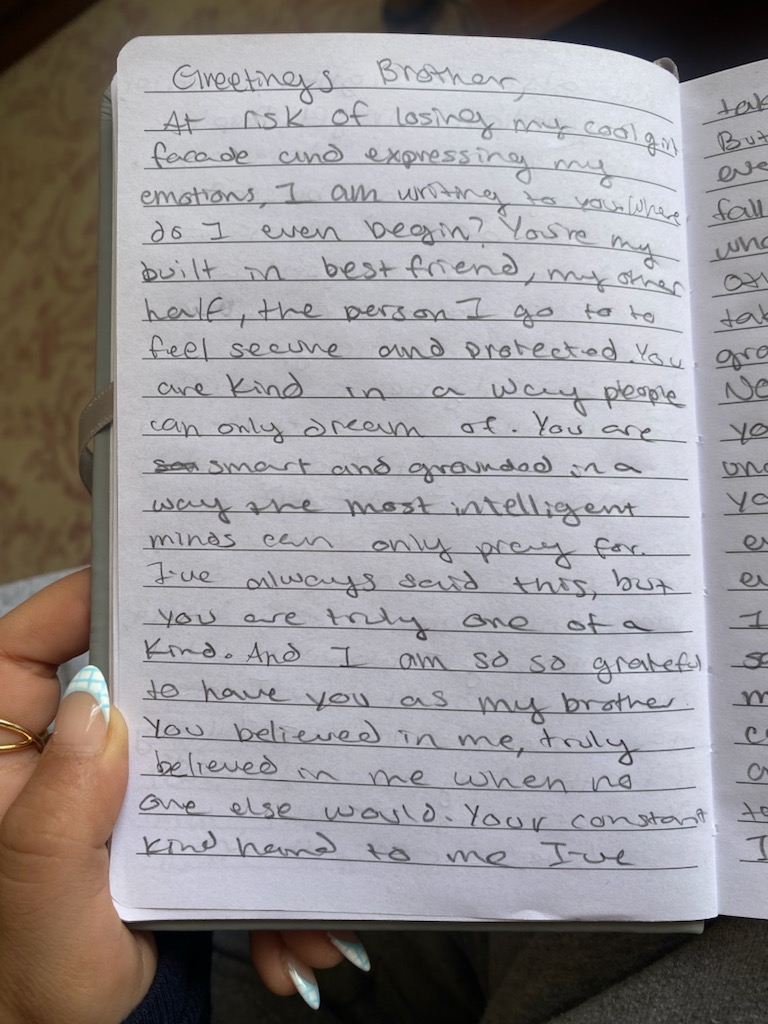 Greetings Brother,
At risk of losing my cool girl
facade and expressing my
emotions, I am writing to you. Where
do I even begin? You're my
built in best friend, my other
half, the person I go to to
feel secure and protected. You
are kind in a way people
can only dream of. You are
smart and grounded in a
way the most intelligent
minds can only pray for.
I've always said this, but
you are truly one of a
kind. And I am so so grateful
to have you as my brother.
You believed in me, truly
believed in me when no
one else would. Your constant
kind hand to me I've
But
fall